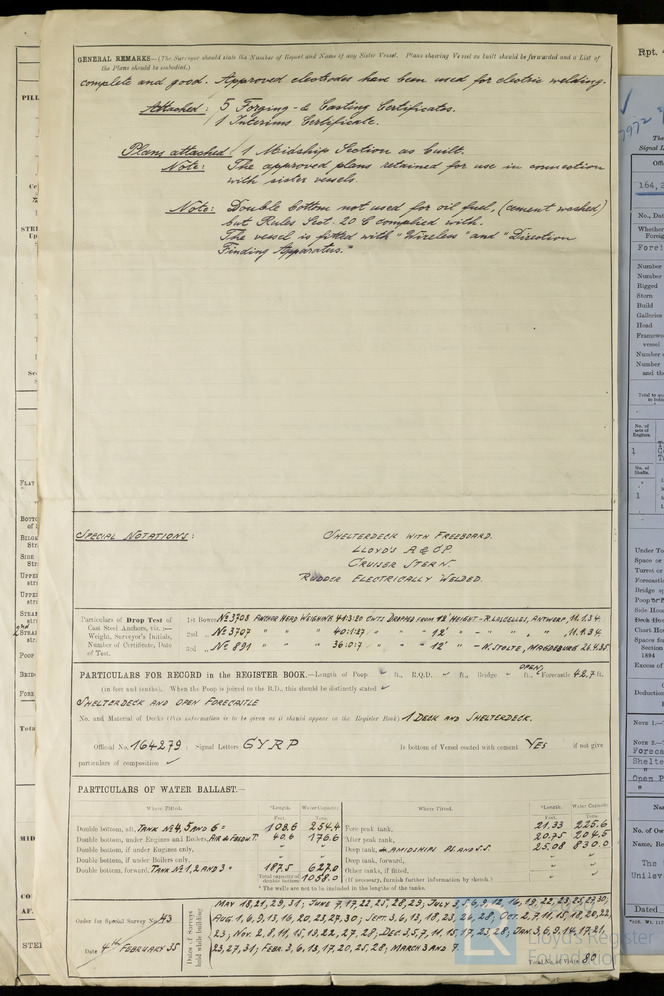 GENERAL REMARKS—(The Surveyor should state the Number of Report and Name of any Sister Vessel. Plans showing Vessel as built should be forwarded and a List of
the Plans should be embodied.)
complete and good. Approved electrodes have been used for electric welding.
Attached: 5 Forging & Casting Certificates.
1 Interims Certificate.
Plans attached: 1 Midship Section as built.
Note: The approved plans retained for use in connection
with sister vessels.
Note: Double bottom not used for oil fuel, (cement washed)
but Rules Sect. 20 C complied with.
The vessel is fitted with "Wireless" and "Direction
Finding Apparatus."
SPECIAL NOTATIONS:
SHELTERDECK WITH FREEBOARD.
LLOYD'S A & CP.
CRUISER STERN.
RUDDER ELECTRICALLY WELDED.
Particulars of Drop Test of
Cast Steel Anchors, viz.:—
Weight, Surveyor's Initials,
Number of Certificate, Date
of Test.
1st Bower No 3708 ANCHOR HEAD WEIGHING 41:3:20 CWTS DROPPED FROM 12' HEIGHT - R. LASCELLES, ANTWERP, 11.1.34.
2nd " No 3707 " " " 40:1:27 " " " 12' " - " " , 11.1.34.
3rd " No 891 " " " 36:0:7 " " " 12' " - W. STOLTE, MAGDEBURG 26.4.35.
PARTICULARS FOR RECORD in the REGISTER BOOK.—Length of Poop ft., R.Q.D. ft., Bridge ft., OPEN, Forecastle 42.7 ft.
(in feet and tenths). When the Poop is joined to the B.D., this should be distinctly stated
SHELTERDECK AND OPEN FORECASTLE
No. and Material of Decks (this information is to be given as it should appear in the Register Book) 1 DECK AND SHELTERDECK.
Official No. 164279; Signal Letters GYRP Is bottom of Vessel coated with cement YES if not give
particulars of composition
PARTICULARS OF WATER BALLAST.—
Where Fitted. *Length. Water Capacity. Where Fitted. *Length. Water Capacity.
Feet. Tons. Feet. Tons.
Double bottom, aft, TANK No 4, 5 AND 6 108.6 254.4 Fore peak tank, 21.33 225.6
Double bottom, under Engines and Boilers, AIR & FEEDW.T. 40.6 176.6 After peak tank, 20.75 204.5
Double bottom, if under Engines only, " " Deep tank, AMIDSHIPS PS. AND S.S. 25.08 830.0
Double bottom, if under Boilers only, " " Deep tank, forward, " "
Double bottom, forward, TANK No 1, 2 AND 3 187.5 627.0 Other tanks, if fitted, " "
Total capacity of double bottom 1058.0 (If necessary, furnish further information by sketch.)
* The wells are not to be included in the lengths of the tanks.
Order for Special Survey No. 43
Date 4th FEBRUARY 35
Dates of Surveys held while building
MAY 18, 21, 29, 31; JUNE 7, 17, 22, 25, 28, 29; JULY 3, 5, 6, 9, 12, 16, 19, 22, 23, 25, 27, 30;
AUG. 1, 6, 9, 13, 16, 20, 23, 27, 30; SEPT. 3, 6, 13, 18, 23, 26, 28; OCT. 2, 7, 11, 15, 18, 20, 22,
23; NOV. 2, 8, 11, 15, 13, 22, 27, 28; DEC. 3, 5, 7, 11, 15, 17, 23, 28; JAN. 3, 6, 9, 14, 17, 21,
23, 27, 31; FEBR. 3, 6, 13, 17, 20, 25, 28; MARCH 3 AND 7.
Total No. of Visits 80
Lloyd's Register
Foundation
Rpt. 4
7972
164,2